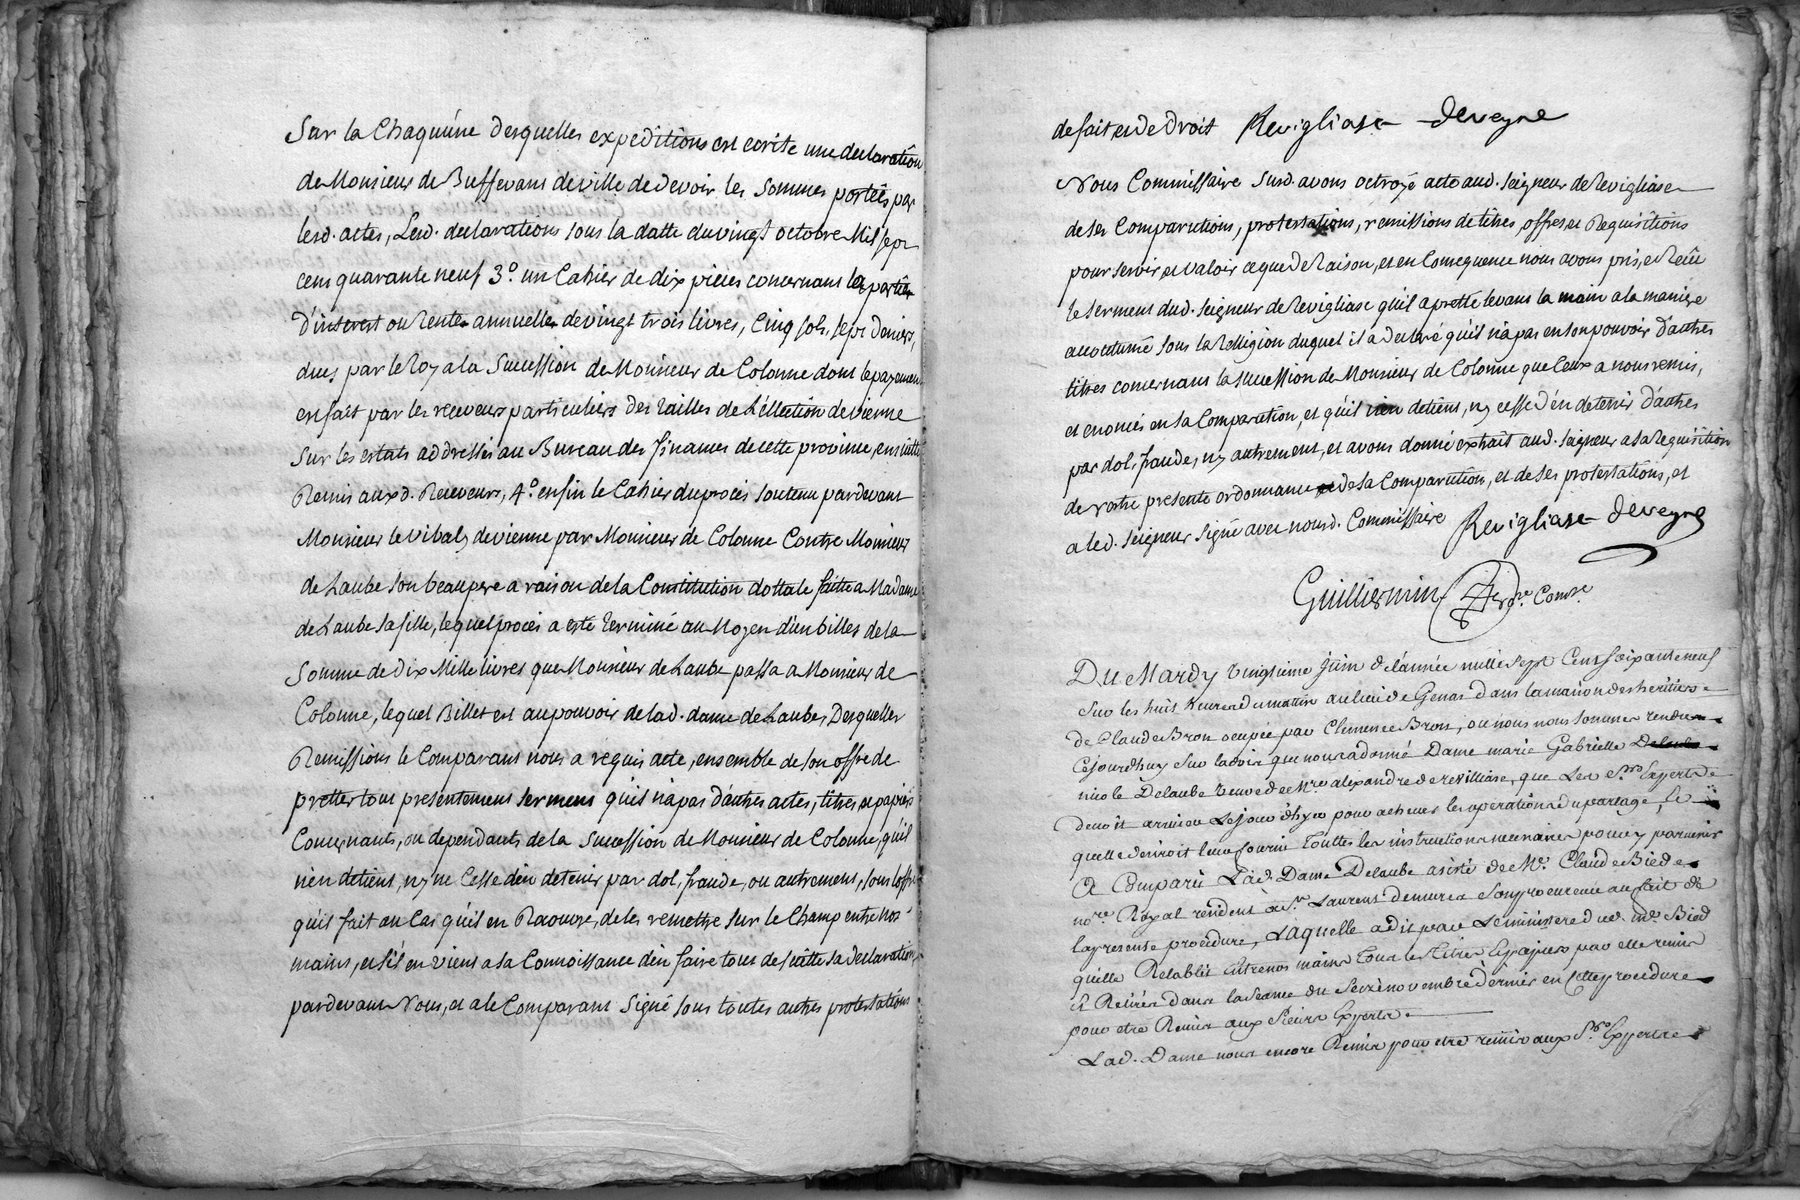 Sur la Chaquúne desquelles expeditions est ecrite une declaration
de Monsieur de Buffevans deville de devoir les sommes portées par
lesd. actes, Lesd. declarations sous la datte du vingt octobre Mil sept
cens quarante neuf 3.º un Cahier de dix pieces concernans la partie
d'interest ou Rente annuelle de vingt trois livres, Cinq sols, sept deniers,
dues par le Roy a la Succession de Monsieur de Colonne dont le payement
en fait par les receveurs particuliers des Tailles de L'éllection de vienne
sur les estats addressés au Bureau des finances de cette province, ensuitte
Remis auxd. Receveurs, 4.º enfin le Cahier du procés soutenu pardevant
Monsieur le vibaly de vienne par Monsieur de Colonne Contre Monsieur
de Laube son beaupere a raison de la Constitution dottale faitte a Madame
de Laube sa fille, lequel procés a esté terminé au Moyen d'un billet de la
Somme de dix Mille livres que Monsieur de Laube passa a Monsieur de
Colonne, lequel Billet est au pouvoir de lad. dame de Laube, Desquelles
Remissions le Comparant nous a requis acte, ensemble de son offre de
pretter tout presentement serment qu'il n'a pas d'autres actes, titres, et papiers
Concernants, ou dependants de la Succession de Monsieur de Colonne, qu'il
n'en detient, ny ne Cesse d'en detenir par dol, fraude, ou autrement, sous l'offre
qu'il fait au Cas qu'il en Recouvre, de les remettre sur le Champ entre nos
mains, et s'il en vient a sa Connoissance d'en faire tout de suitte sa declaration
pardevant Nous, et a le Comparant Signé sous toutes autres protestations
de fait et de droit Revigliasc deveyne
Nous Commissaire susd. avons octroyé acte aud. seigneur de Revigliasc
de ses Comparutions, protestations, remissions de titres, offres, et Requisitions
pour servir, et valoir ce que de Raison, et en Consequence nous avons pris, et Reçû
le serment dud. seigneur de Revigliasc qu'il a pretté levant la main a la maniere
accoutumé sous la Religion duquel il a declaré qu'il n'a pas en son pouvoir d'autres
titres concernans la succession de Monsieur de Colonne que Ceux a nous remis,
et enoncés en sa Comparution, et qu'il n'en detient, ny cesse d'en detenir d'autres
par dol, fraude, ny autrement, et avons donné extrait aud. seigneur a sa requisition
de nostre presente ordonnance de sa Comparution, et de ses protestations, et
a led. seigneur signé avec nousd. Commissaire Revigliasc deveyne
Guilliermin Comre.
Du Mardy vingtieme Juin de l'année mille sept Cent soixante neuf
sur les huit heures du mattin au lieu de Genas dans la maison des heritiers
de Claude Bron ocupée par Clemence Bron, ou nous nous sommes rendu
Cejourdhuy sur lavis que nous a donné Dame marie Gabrielle
nicole Delaube veuve de Mre alexandre de revilliasc, que Les Srs Experts
devoit arriver Lejourdhyer pour achever les operations du partage, Se
quelle desiroit leur fournir Touttes les instructions necessaires pour y parvenir
A Comparû Lad. Dame Delaube asisté de Me. Claude Biede
nore. Royal resident à St. Laurent demures son procureur au fait de
la presente procedure, Laquelle a dit par Le ministere dud. me. Bied
quelle Retablit entre nos mains Tous les Titres Et papiers par elle remis
Et Retirés dans la seance du seize novembre dernier en Cette procedure
pour etre Remis aux sieurs Experts.
Lad. Dame nous encore Remis pour etre remis aux Srs. Experts